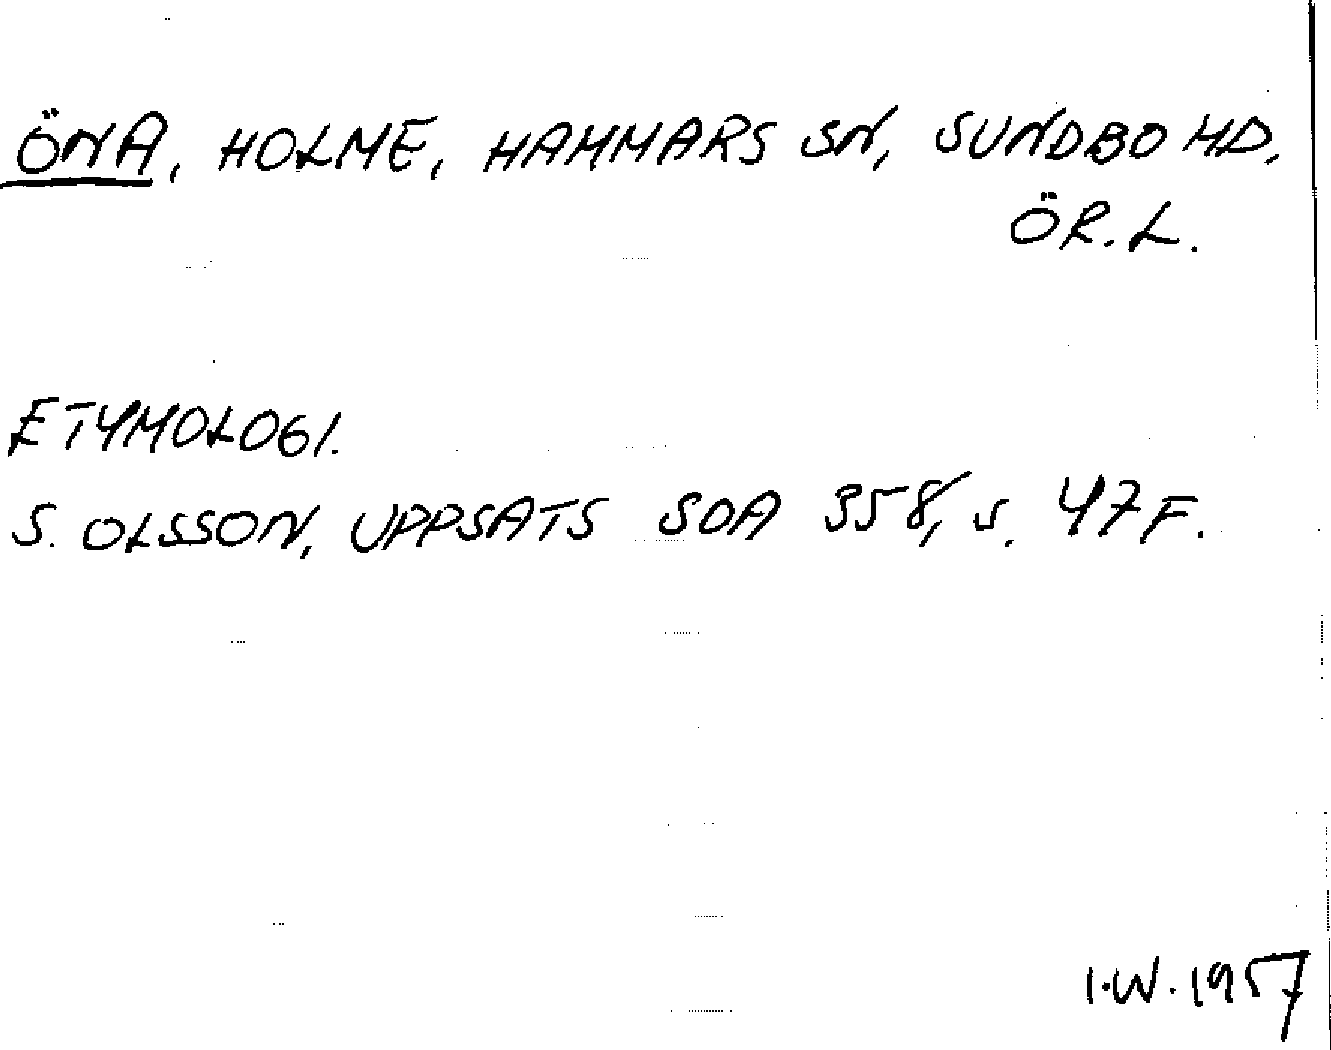 ÖNA, HOLME, HAMMARS SN, SUNDBO HD,
ÖR.L.
ETYMOLOGI.
S. OLSSON, UPPSATS SOA 358, s. 47 F.
I.W. 1957